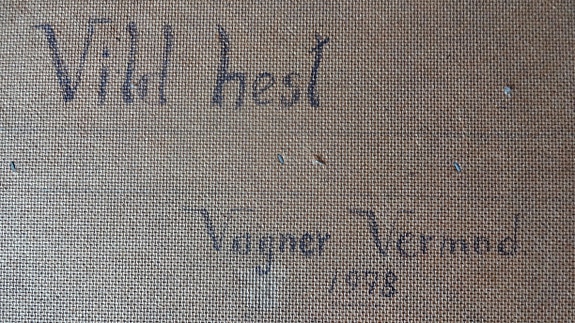 Vill hest
Vagner Vermod
1978